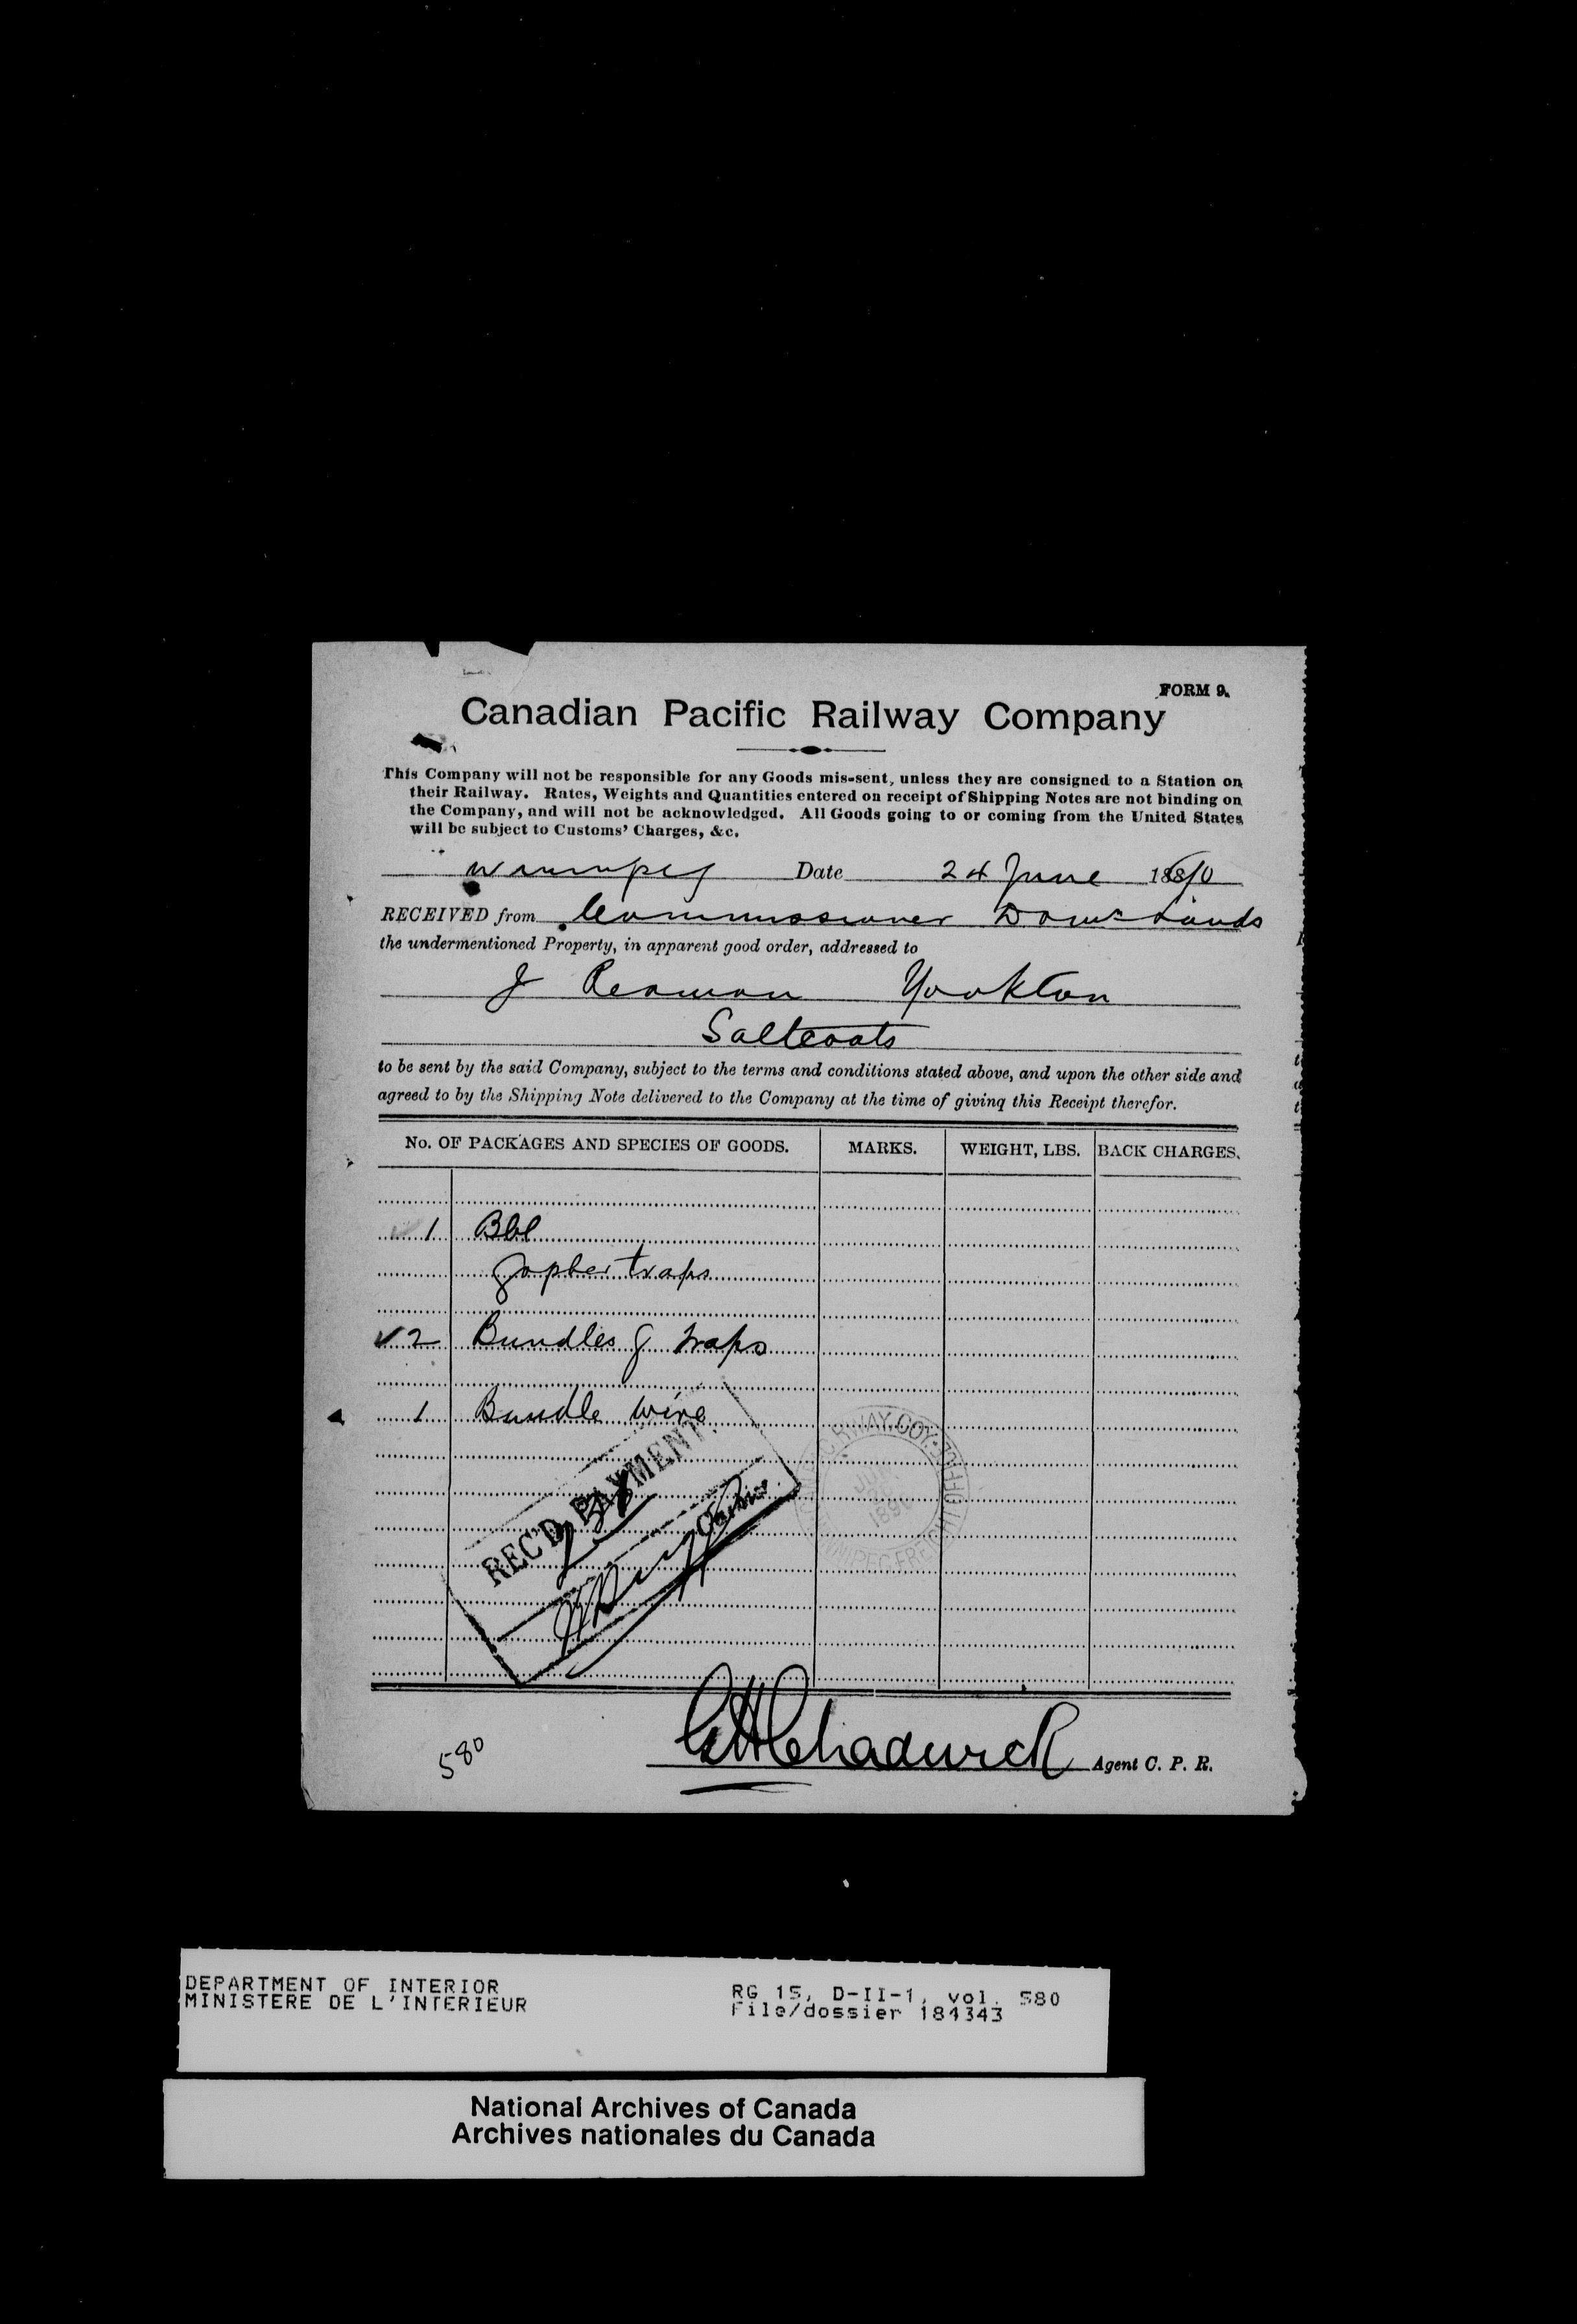 FORM 9.
Canadian Pacific Railway Company
This Company will not be responsible for any Goods mis-sent, unless they are consigned to a Station on
their Railway. Rates, Weights and Quantities entered on receipt of Shipping Notes are not binding on
the Company, and will not be acknowledged. All Goods going to or coming from the United States
will be subject to Customs' Charges, &c.
Winnipeg Date 24 June 1890
RECEIVED from Commissioner Domn Lands
the undermentioned Property, in apparent good order, addressed to
J Yorkton
Saltcoats
to be sent by the said Company, subject to the terms and conditions stated above, and upon the other side and
agreed to by the Shipping Note delivered to the Company at the time of giving this Receipt therefor.
No. OF PACKAGES AND SPECIES OF GOODS. MARKS. WEIGHT, LBS. BACK CHARGES.
1 Bbl
Gopher traps
2 Bundles G traps
1 Bundle wire
REC'D PAYMENT.
Cashier
RWAY. COY.
JUN
189
WINNIPEG FREIGHT OFFICE
580
Chadwick Agent C. P. R.
DEPARTMENT OF INTERIOR
MINISTERE DE L'INTERIEUR
RG 15, D-II-1, vol. 580
File/dossier 184343
National Archives of Canada
Archives nationales du Canada